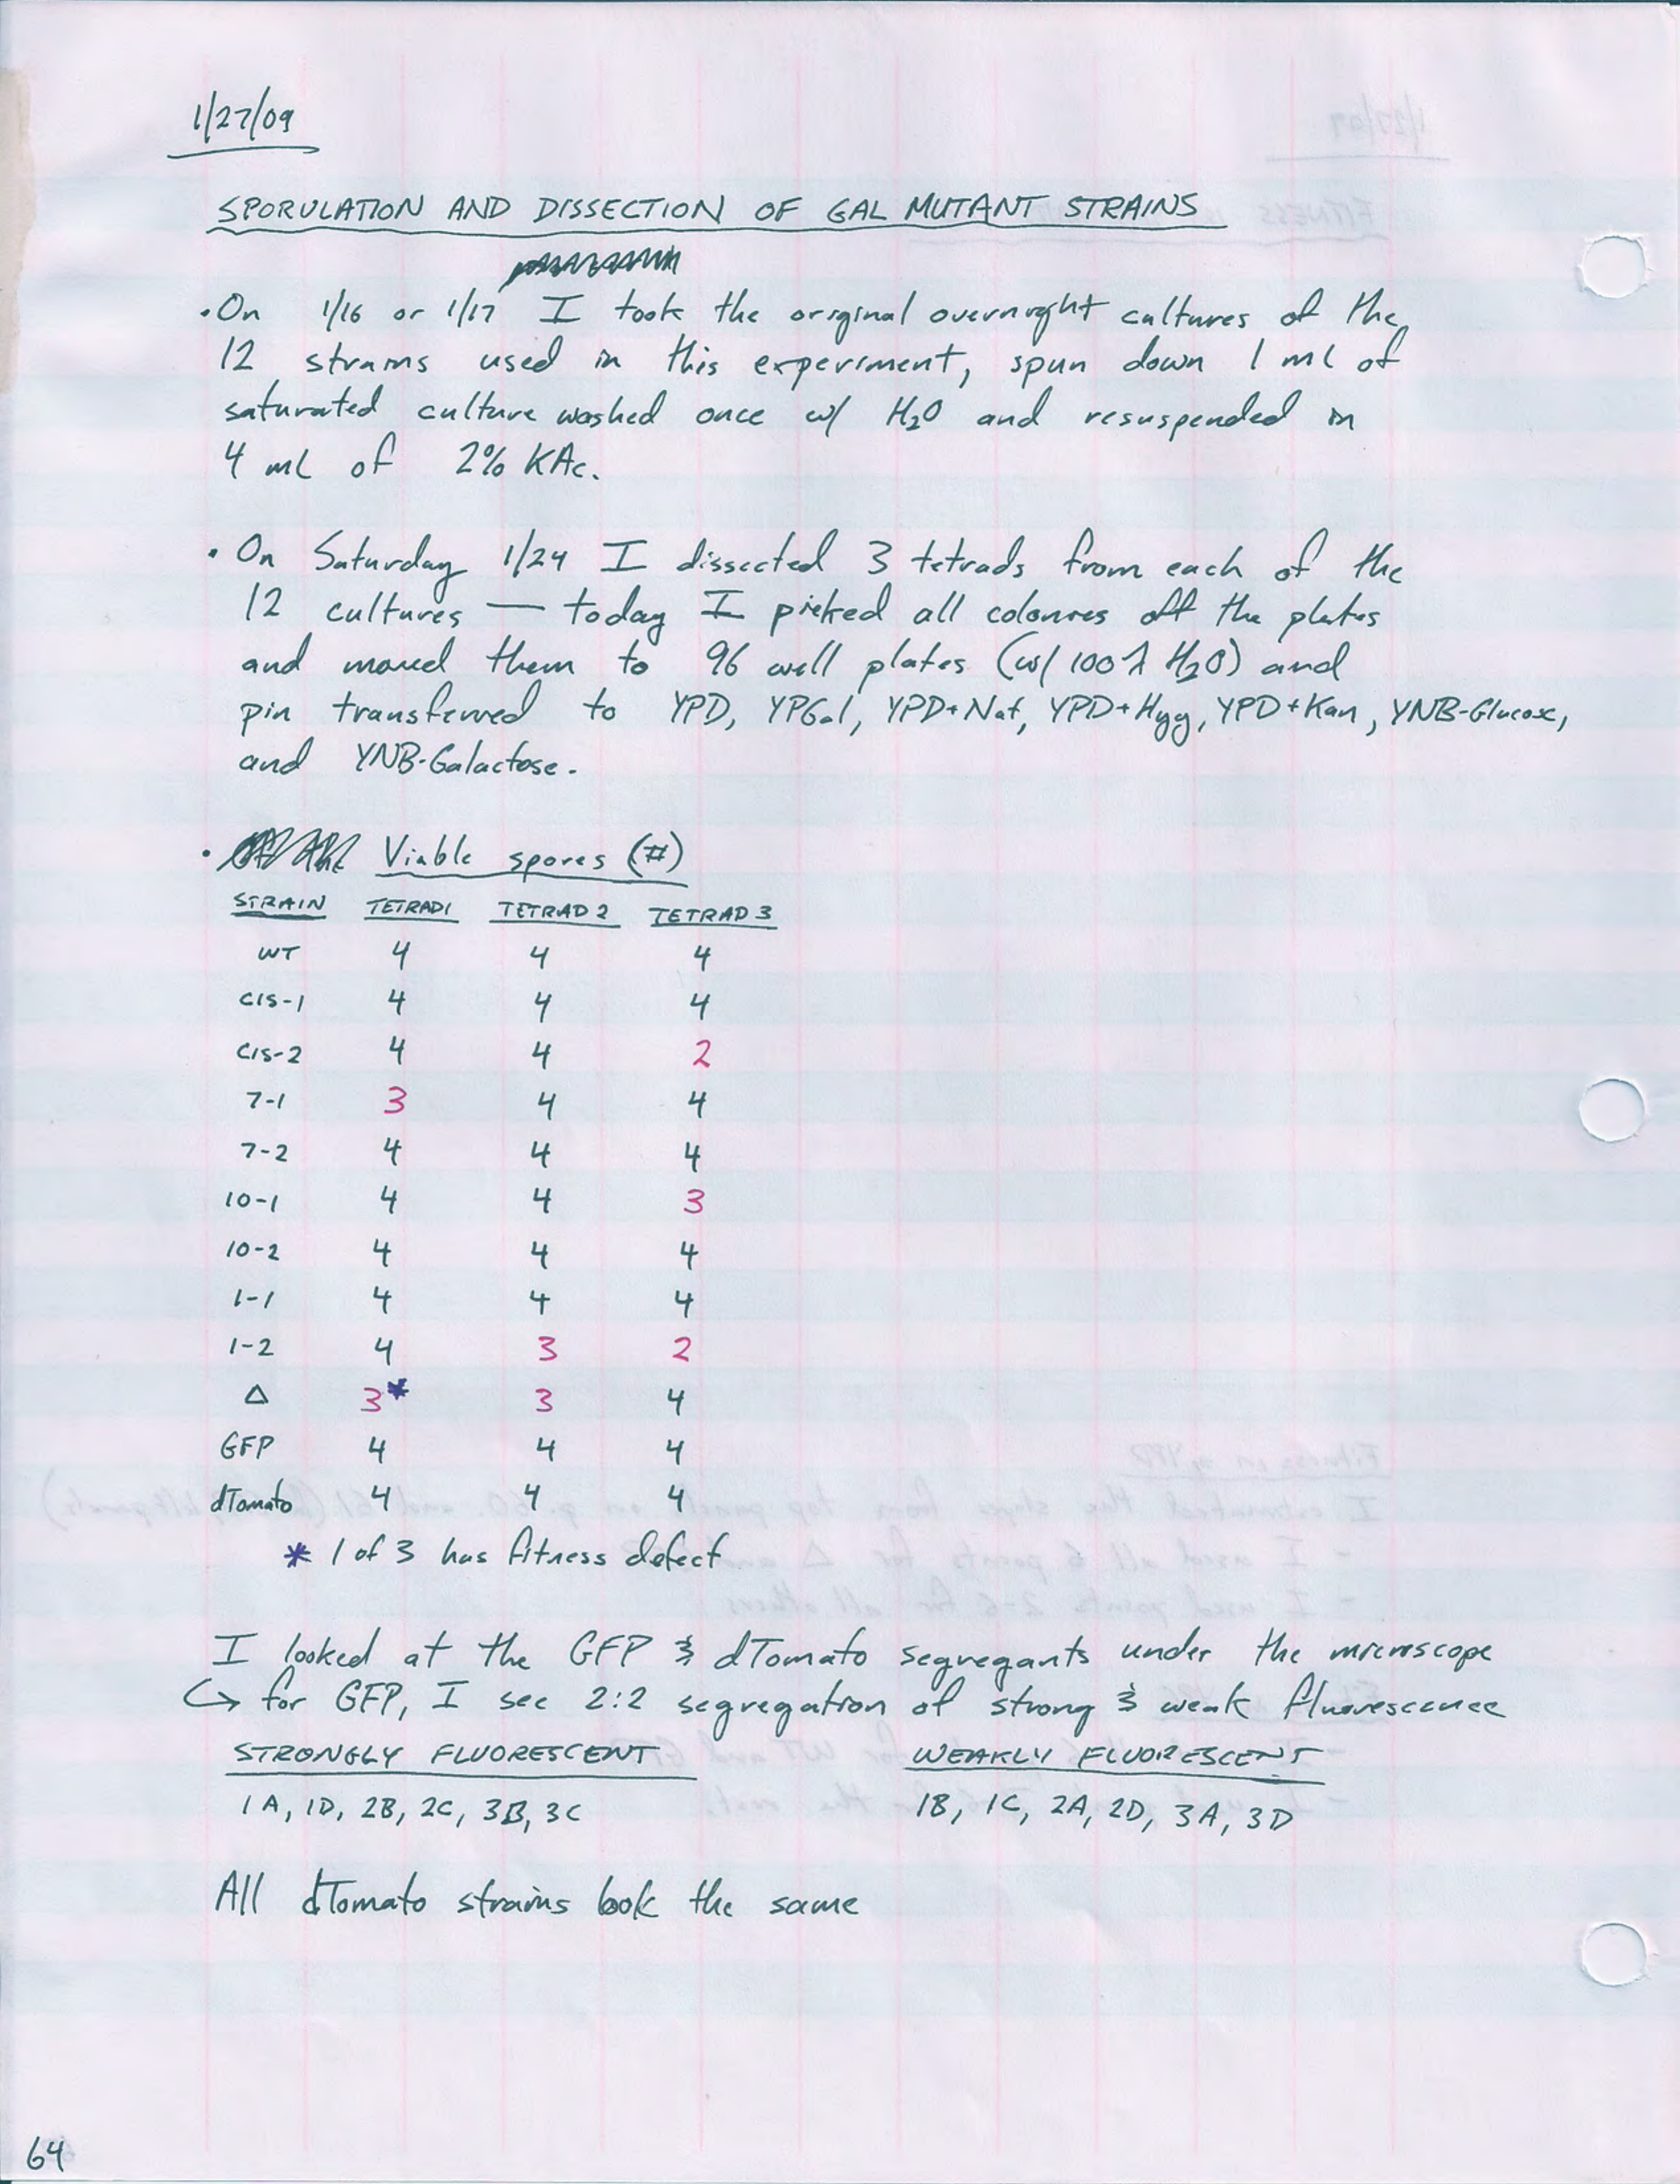 1/27/09
SPORULATION AND DISSECTION OF GAL MUTANT STRAINS
• On 1/16 or 1/17 I took the original overnight cultures of the
12 strains used in this experiment, spun down 1 mL of
saturated culture washed once w/ H2O and resuspended in
4 mL of 2% KAc.
• On Saturday 1/24 I dissected 3 tetrads from each of the
12 cultures — today I picked all colonies off the plates
and moved them to 96 well plates (w/ 100 λ H2O) and
pin transferred to YPD, YPGal, YPD+Nat, YPD+Hyg, YPD+Kan, YNB-Glucose,
and YNB-Galactose.
• Viable spores (#)
STRAIN TETRAD1 TETRAD 2 TETRAD 3
WT 4 4 4
CIS-1 4 4 4
CIS-2 4 4 2
7-1 3 4 4
7-2 4 4 4
10-1 4 4 3
10-2 4 4 4
1-1 4 4 4
1-2 4 3 2
Δ 3* 3 4
GFP 4 4 4
dTomato 4 4 4
* 1 of 3 has fitness defect
I looked at the GFP & dTomato segregants under the microscope
↳ for GFP, I see 2:2 segregation of strong & weak fluorescence
STRONGLY FLUORESCENT WEAKLY FLUORESCENT
1A, 1D, 2B, 2C, 3B, 3C 1B, 1C, 2A, 2D, 3A, 3D
All dTomato strains look the same
64